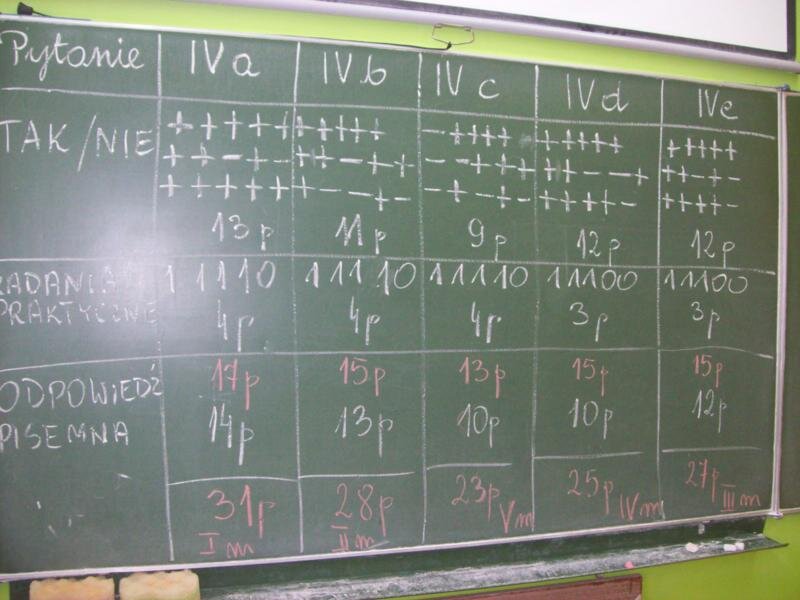 Pytanie IVa IVb IVc IVd IVe
TAK/NIE +++++ +++++ -++++ +++++ +++++
++-+- ++-++ --+++ ++--+ ++-+-
+++++ +--+- -+-+- ++++- +++--
13p 11p 9p 12p 12p
ZADANIA 11110 11110 11110 11100 11100
PRAKTYCZNE 4p 4p 4p 3p 3p
17p 15p 13p 15p 15p
ODPOWIEDŹ 14p 13p 10p 10p 12p
PISEMNA
31p 28p 23p 25p 27p
I m II m V m IV m III m